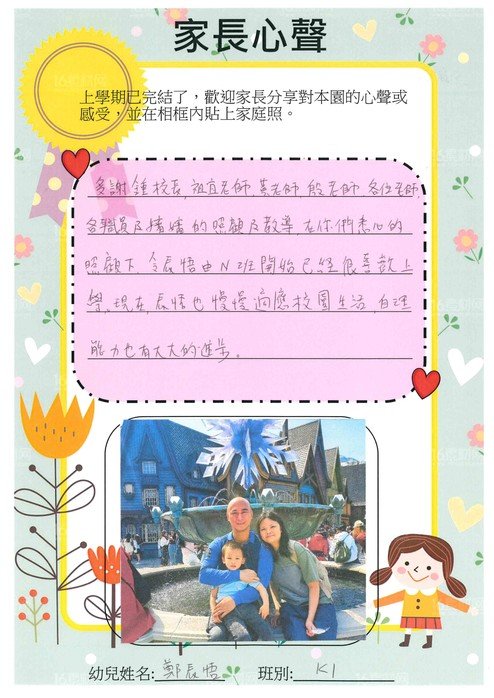 家長心聲
上學期已完結了，歡迎家長分享對本園的心聲或
感受，並在相框內貼上家庭照。
多謝鍾校長,祖宜老師,黃老師,殷老師,各位老師,
各職員及嬸嬸的照顧及教導,在你們悉心的
照顧下,令辰悟由N班開始已經很喜歡上
學,現在辰悟也慢慢適應校園生活,自理
能力也有大大的進步。
幼兒姓名: 鄭辰悟 班別: K1